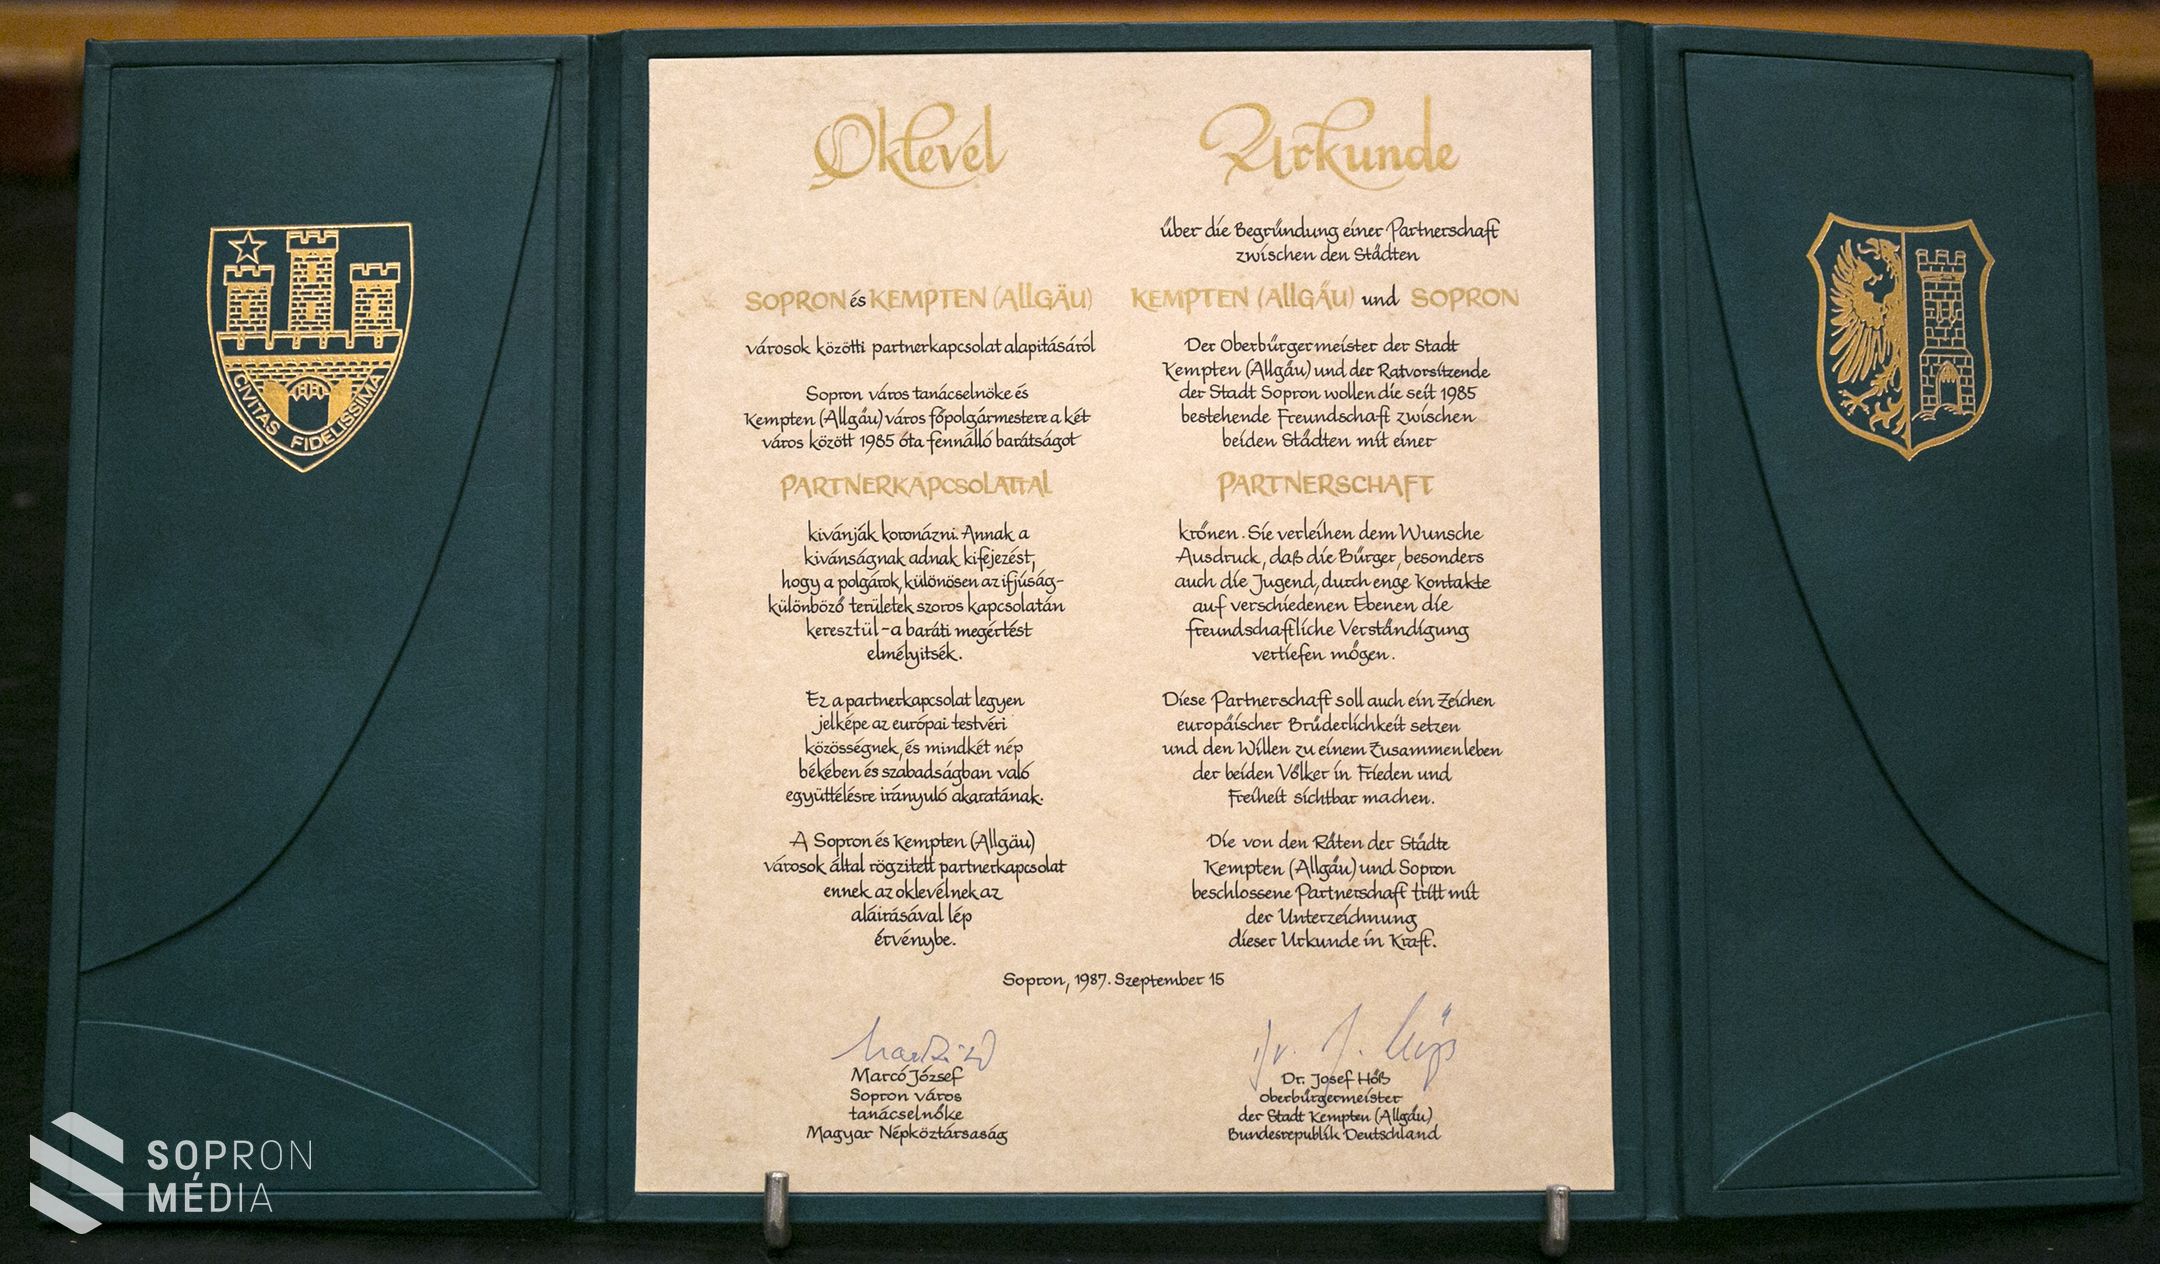 CIVITAS FIDELISSIMA
Oklevél
SOPRON és KEMPTEN (ALLGÄU)
városok közötti partnerkapcsolat alapitásáról
Sopron város tanácselnöke és
Kempten (Allgäu) város főpolgármestere a két
város között 1985 óta fennálló barátságot
PARTNERKAPCSOLATTAL
kivánják koronázni. Annak a
kivánságnak adnak kifejezést,
hogy a polgárok, különösen az ifjúság-
különböző területek szoros kapcsolatán
keresztül - a baráti megértést
elmélyitsék.
Ez a partnerkapcsolat legyen
jelképe az európai testvéri
közösségnek, és mindkét nép
békében és szabadságban való
együttélésre irányuló akaratának.
A Sopron és Kempten (Allgäu)
városok által rögzitett partnerkapcsolat
ennek az oklevélnek az
aláirásával lép
érvénybe.
Urkunde
über die Begründung einer Partnerschaft
zwischen den Städten
KEMPTEN (ALLGÄU) und SOPRON
Der Oberbürgermeister der Stadt
Kempten (Allgäu) und der Ratvorsitzende
der Stadt Sopron wollen die seit 1985
bestehende Freundschaft zwischen
beiden Städten mit einer
PARTNERSCHAFT
krönen. Sie verleihen dem Wunsche
Ausdruck, daß die Bürger, besonders
auch die Jugend, durch enge Kontakte
auf verschiedenen Ebenen die
freundschaftliche Verständigung
vertiefen mögen.
Diese Partnerschaft soll auch ein Zeichen
europäischer Brüderlichkeit setzen
und den Willen zu einem Zusammenleben
der beiden Völker in Frieden und
Freiheit sichtbar machen.
Die von den Räten der Städte
Kempten (Allgäu) und Sopron
beschlossene Partnerschaft tritt mit
der Unterzeichnung
dieser Urkunde in Kraft.
Sopron, 1987. Szeptember 15
Marcó József
Sopron város
tanácselnöke
Magyar Népköztársaság
Dr. J. Höß
Dr. Josef Höß
Oberbürgermeister
der Stadt Kempten (Allgäu)
Bundesrepublik Deutschland
SOPRON
MÉDIA